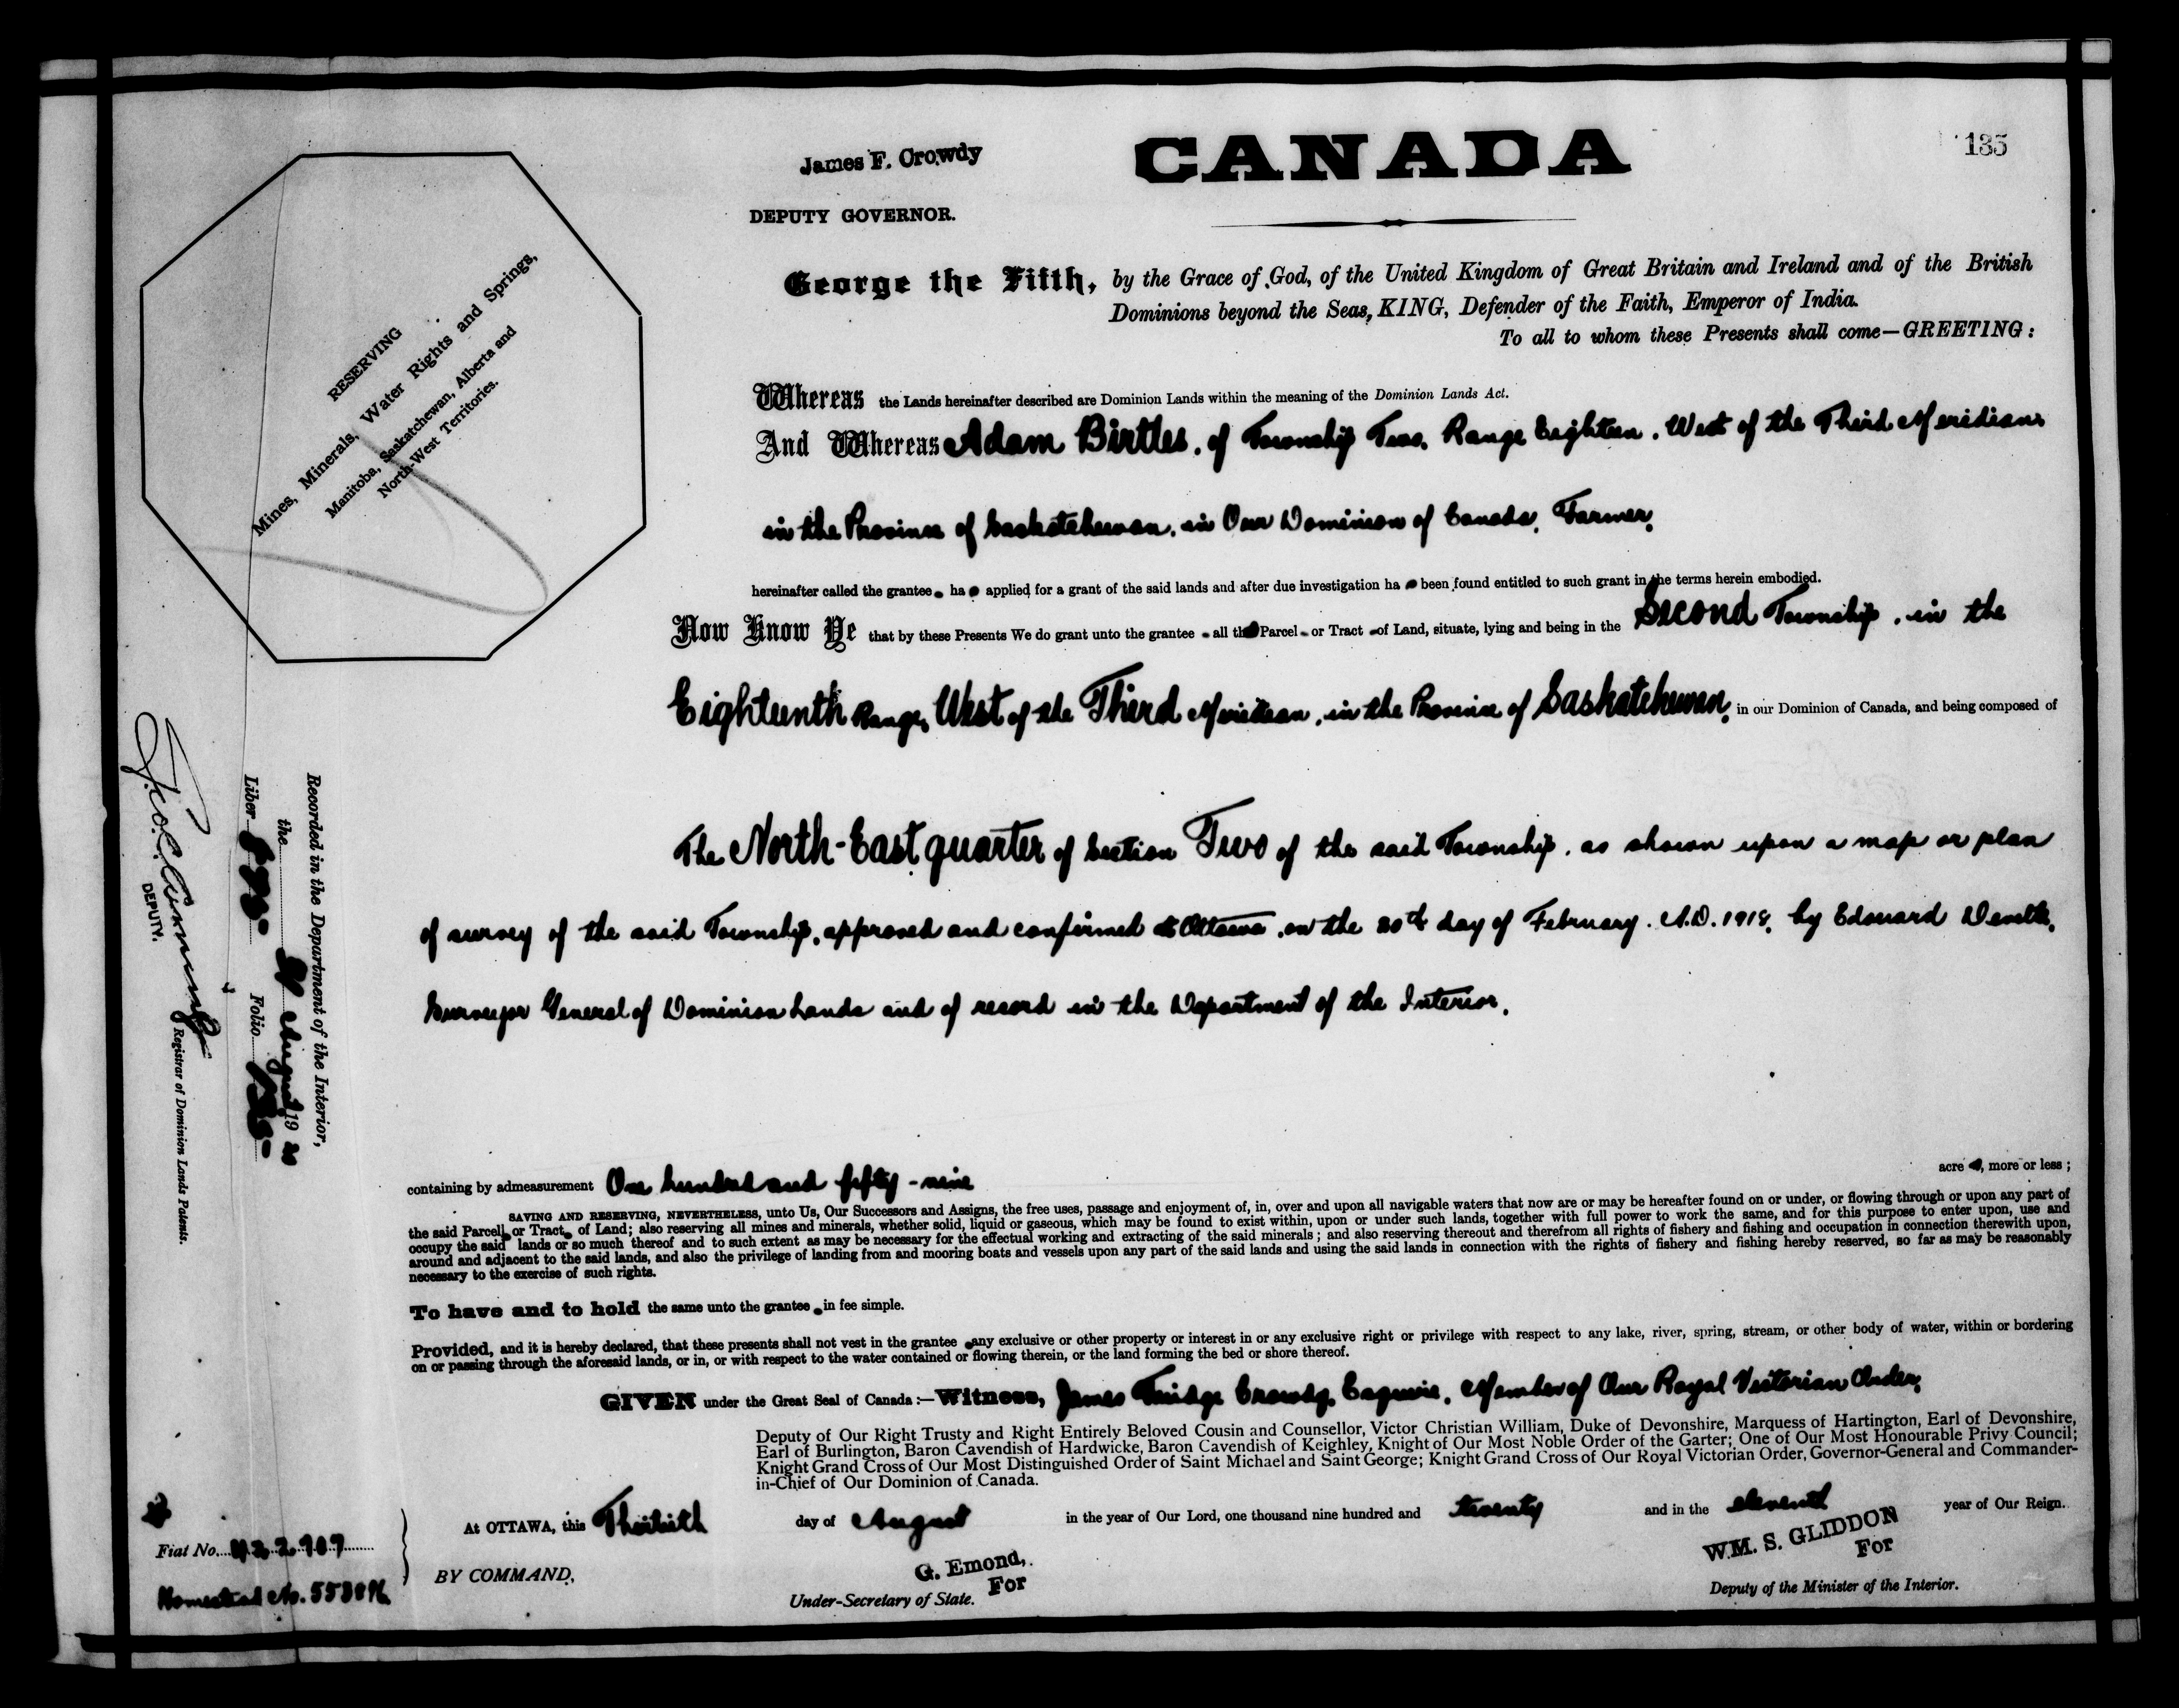 135
James F. Crowdy
CANADA
DEPUTY GOVERNOR.
George the Fifth, by the Grace of God, of the United Kingdom of Great Britain and Ireland and of the British
Dominions beyond the Seas, KING, Defender of the Faith, Emperor of India.
To all to whom these Presents shall come—GREETING:
RESERVING
Mines, Minerals, Water Rights and Springs,
Manitoba, Saskatchewan, Alberta and
North-West Territories.
Whereas the Lands hereinafter described are Dominion Lands within the meaning of the Dominion Lands Act.
And Whereas Adam Birtles, of Township Two, Range Eighteen, West of the Third Meridian,
in the Province of Saskatchewan, in Our Dominion of Canada, Farmer,
hereinafter called the grantee ha applied for a grant of the said lands and after due investigation ha been found entitled to such grant in the terms herein embodied.
Now Know Ye that by these Presents We do grant unto the grantee all th Parcel or Tract of Land, situate, lying and being in the Second Township, in the
Eighteenth Range, West of the Third Meridian, in the Province of Saskatchewan, in our Dominion of Canada, and being composed of
The North-East quarter of Section Two of the said Township, as shown upon a map or plan
of survey of the said Township, approved and confirmed at Ottawa, on the 20th day of February, A.D. 1918, by Edouard Deville,
Surveyor General of Dominion Lands and of record in the Department of the Interior.
containing by admeasurement One hundred and fifty-nine acre , more or less;
SAVING AND RESERVING, NEVERTHELESS, unto Us, Our Successors and Assigns, the free uses, passage and enjoyment of, in, over and upon all navigable waters that now are or may be hereafter found on or under, or flowing through or upon any part of
the said Parcel or Tract of Land; also reserving all mines and minerals, whether solid, liquid or gaseous, which may be found to exist within, upon or under such lands, together with full power to work the same, and for this purpose to enter upon, use and
occupy the said lands or so much thereof and to such extent as may be necessary for the effectual working and extracting of the said minerals; and also reserving thereout and therefrom all rights of fishery and fishing and occupation in connection therewith upon,
around and adjacent to the said lands, and also the privilege of landing from and mooring boats and vessels upon any part of the said lands and using the said lands in connection with the rights of fishery and fishing hereby reserved, so far as may be reasonably
necessary to the exercise of such rights.
To have and to hold the same unto the grantee in fee simple.
Provided, and it is hereby declared, that these presents shall not vest in the grantee any exclusive or other property or interest in or any exclusive right or privilege with respect to any lake, river, spring, stream, or other body of water, within or bordering
on or passing through the aforesaid lands, or in, or with respect to the water contained or flowing therein, or the land forming the bed or shore thereof.
GIVEN under the Great Seal of Canada:—Witness, James Crowdy, Esquire, Member of Our Royal Victorian Order,
Deputy of Our Right Trusty and Right Entirely Beloved Cousin and Counsellor, Victor Christian William, Duke of Devonshire, Marquess of Hartington, Earl of Devonshire,
Earl of Burlington, Baron Cavendish of Hardwicke, Baron Cavendish of Keighley, Knight of Our Most Noble Order of the Garter; One of Our Most Honourable Privy Council;
Knight Grand Cross of Our Most Distinguished Order of Saint Michael and Saint George; Knight Grand Cross of Our Royal Victorian Order, Governor-General and Commander-
in-Chief of Our Dominion of Canada.
At OTTAWA, this Thirtieth day of August in the year of Our Lord, one thousand nine hundred and twenty and in the eleventh year of Our Reign.
BY COMMAND,
G. Emond,
For
Under-Secretary of State.
WM. S. GLIDDON
For
Deputy of the Minister of the Interior.
Fiat No. 422907
Homestead No.
Recorded in the Department of the Interior,
the August 19
Liber Folio
DEPUTY. Registrar of Dominion Lands Patents.